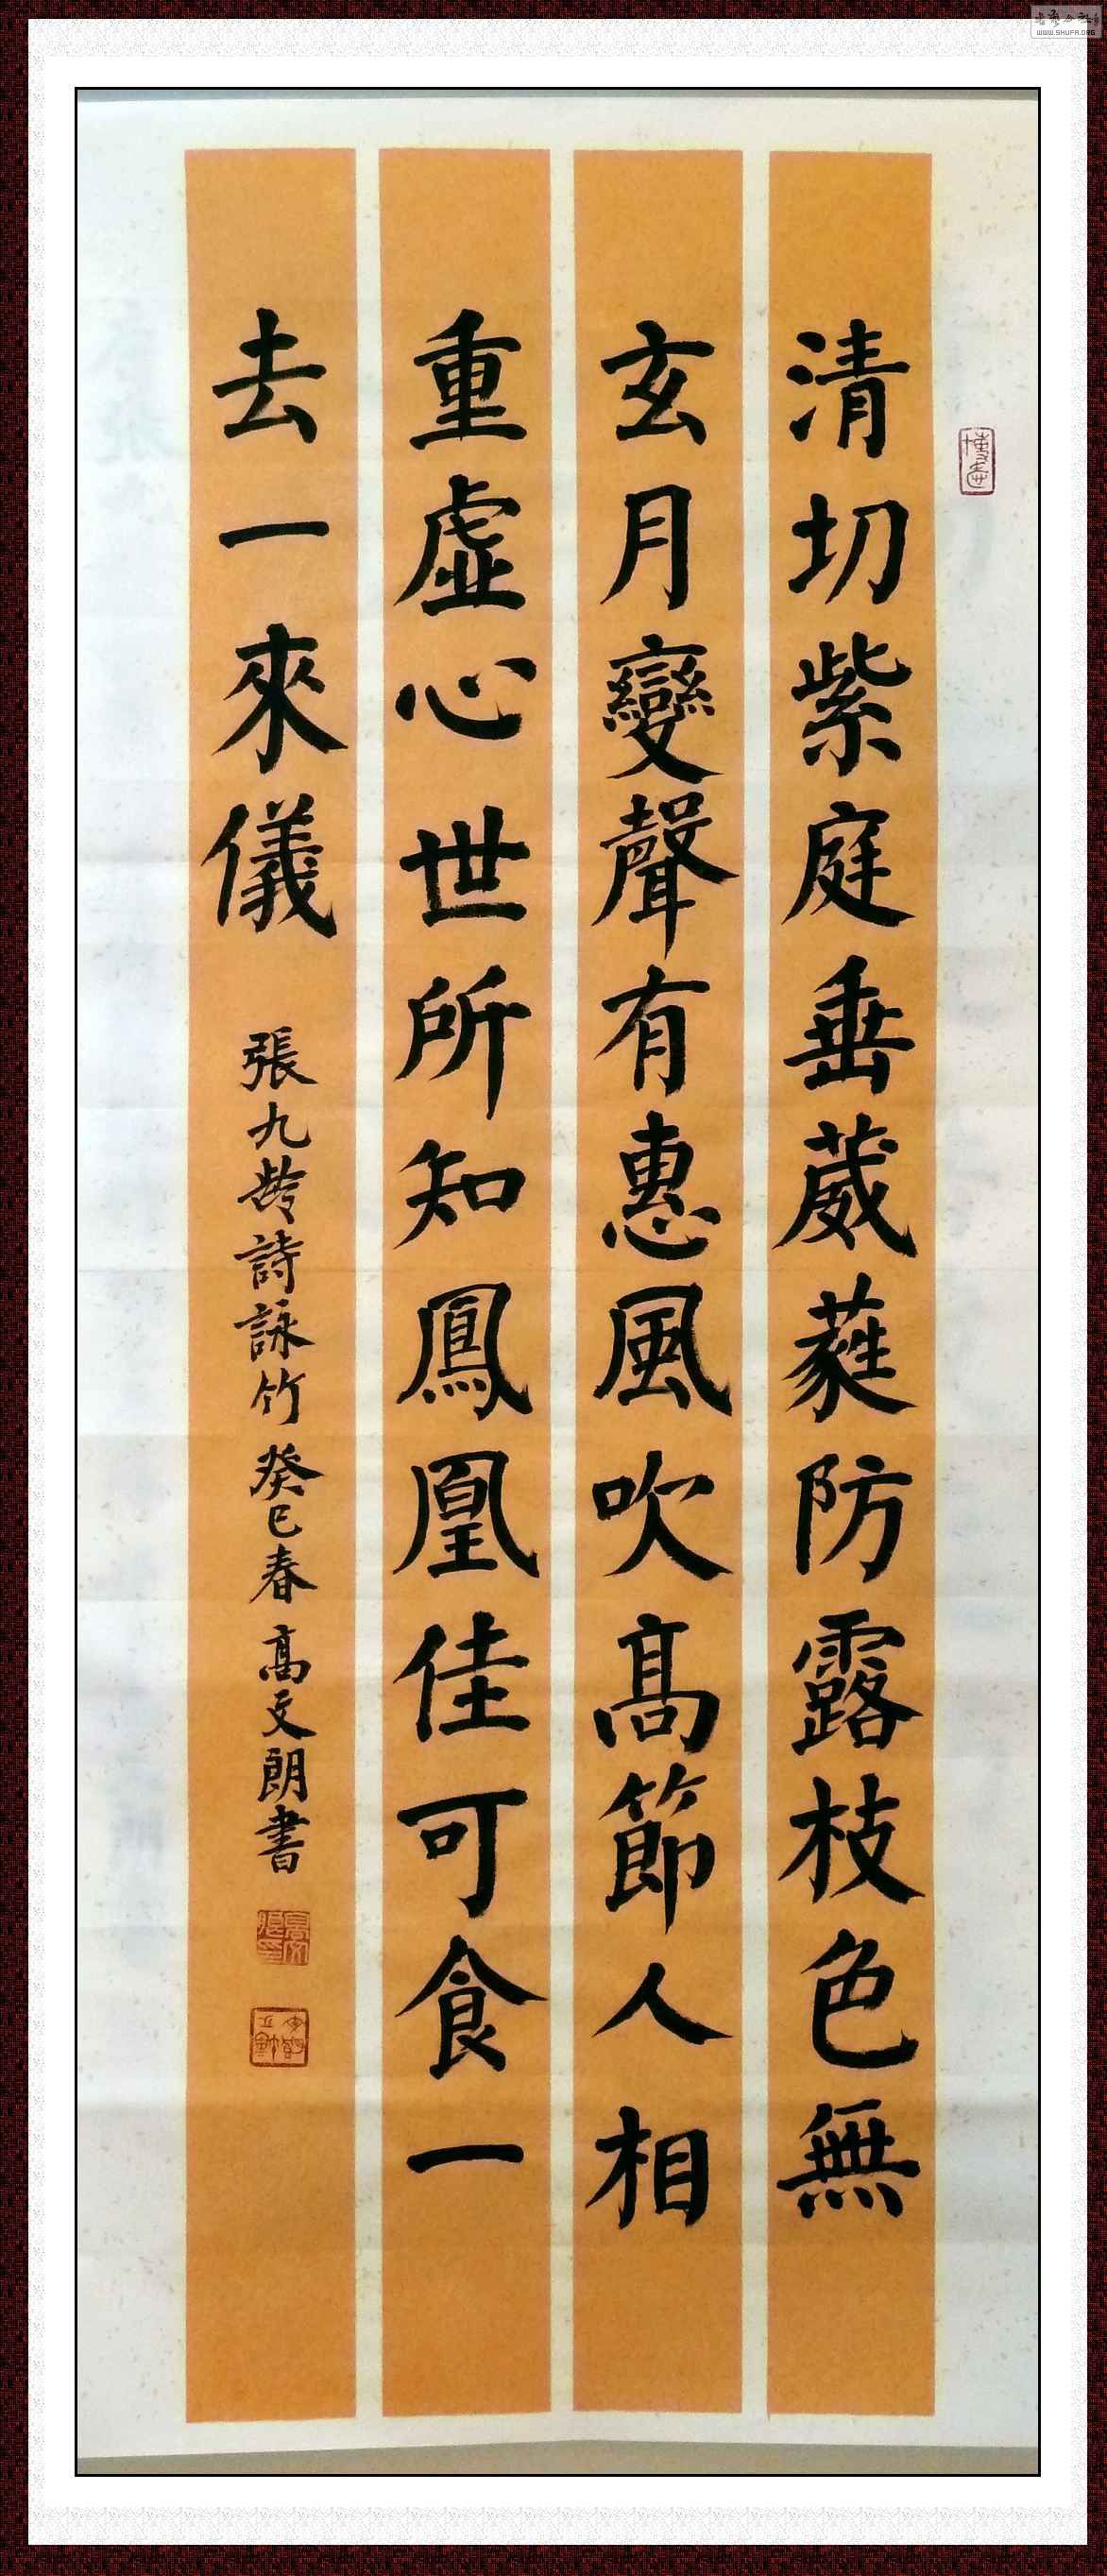 清切紫庭垂葳蕤防露枝色無
玄月變聲有惠風吹高節人相
重虛心世所知鳳凰佳可食一
去一來儀
張九齡詩詠竹 癸巳春 高文朗書
WWW.SHUFA.ORG